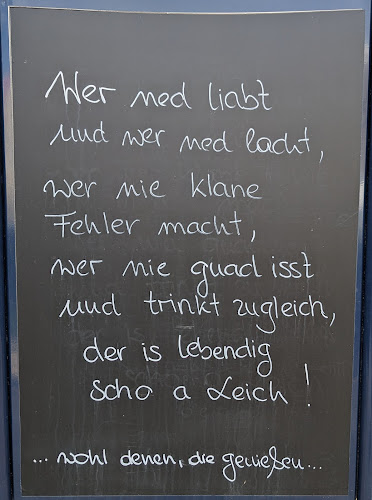 Wer ned liabt
und wer ned lacht,
wer nie klane
Fehler macht,
wer nie guad isst
und trinkt zugleich,
der is lebendig
scho a Leich!
... wohl denen, die genießen...